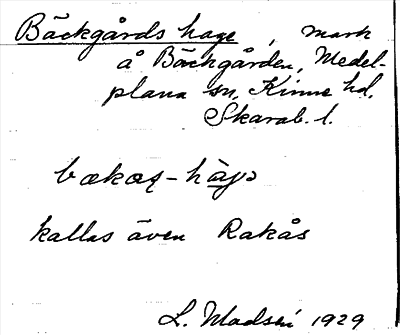 Bäckgårds hage, mark
å Bäckgården, Medel-
plana sn, Kinne hd.
Skarab. l.
kallas även Rakås
L. Madsén 1929